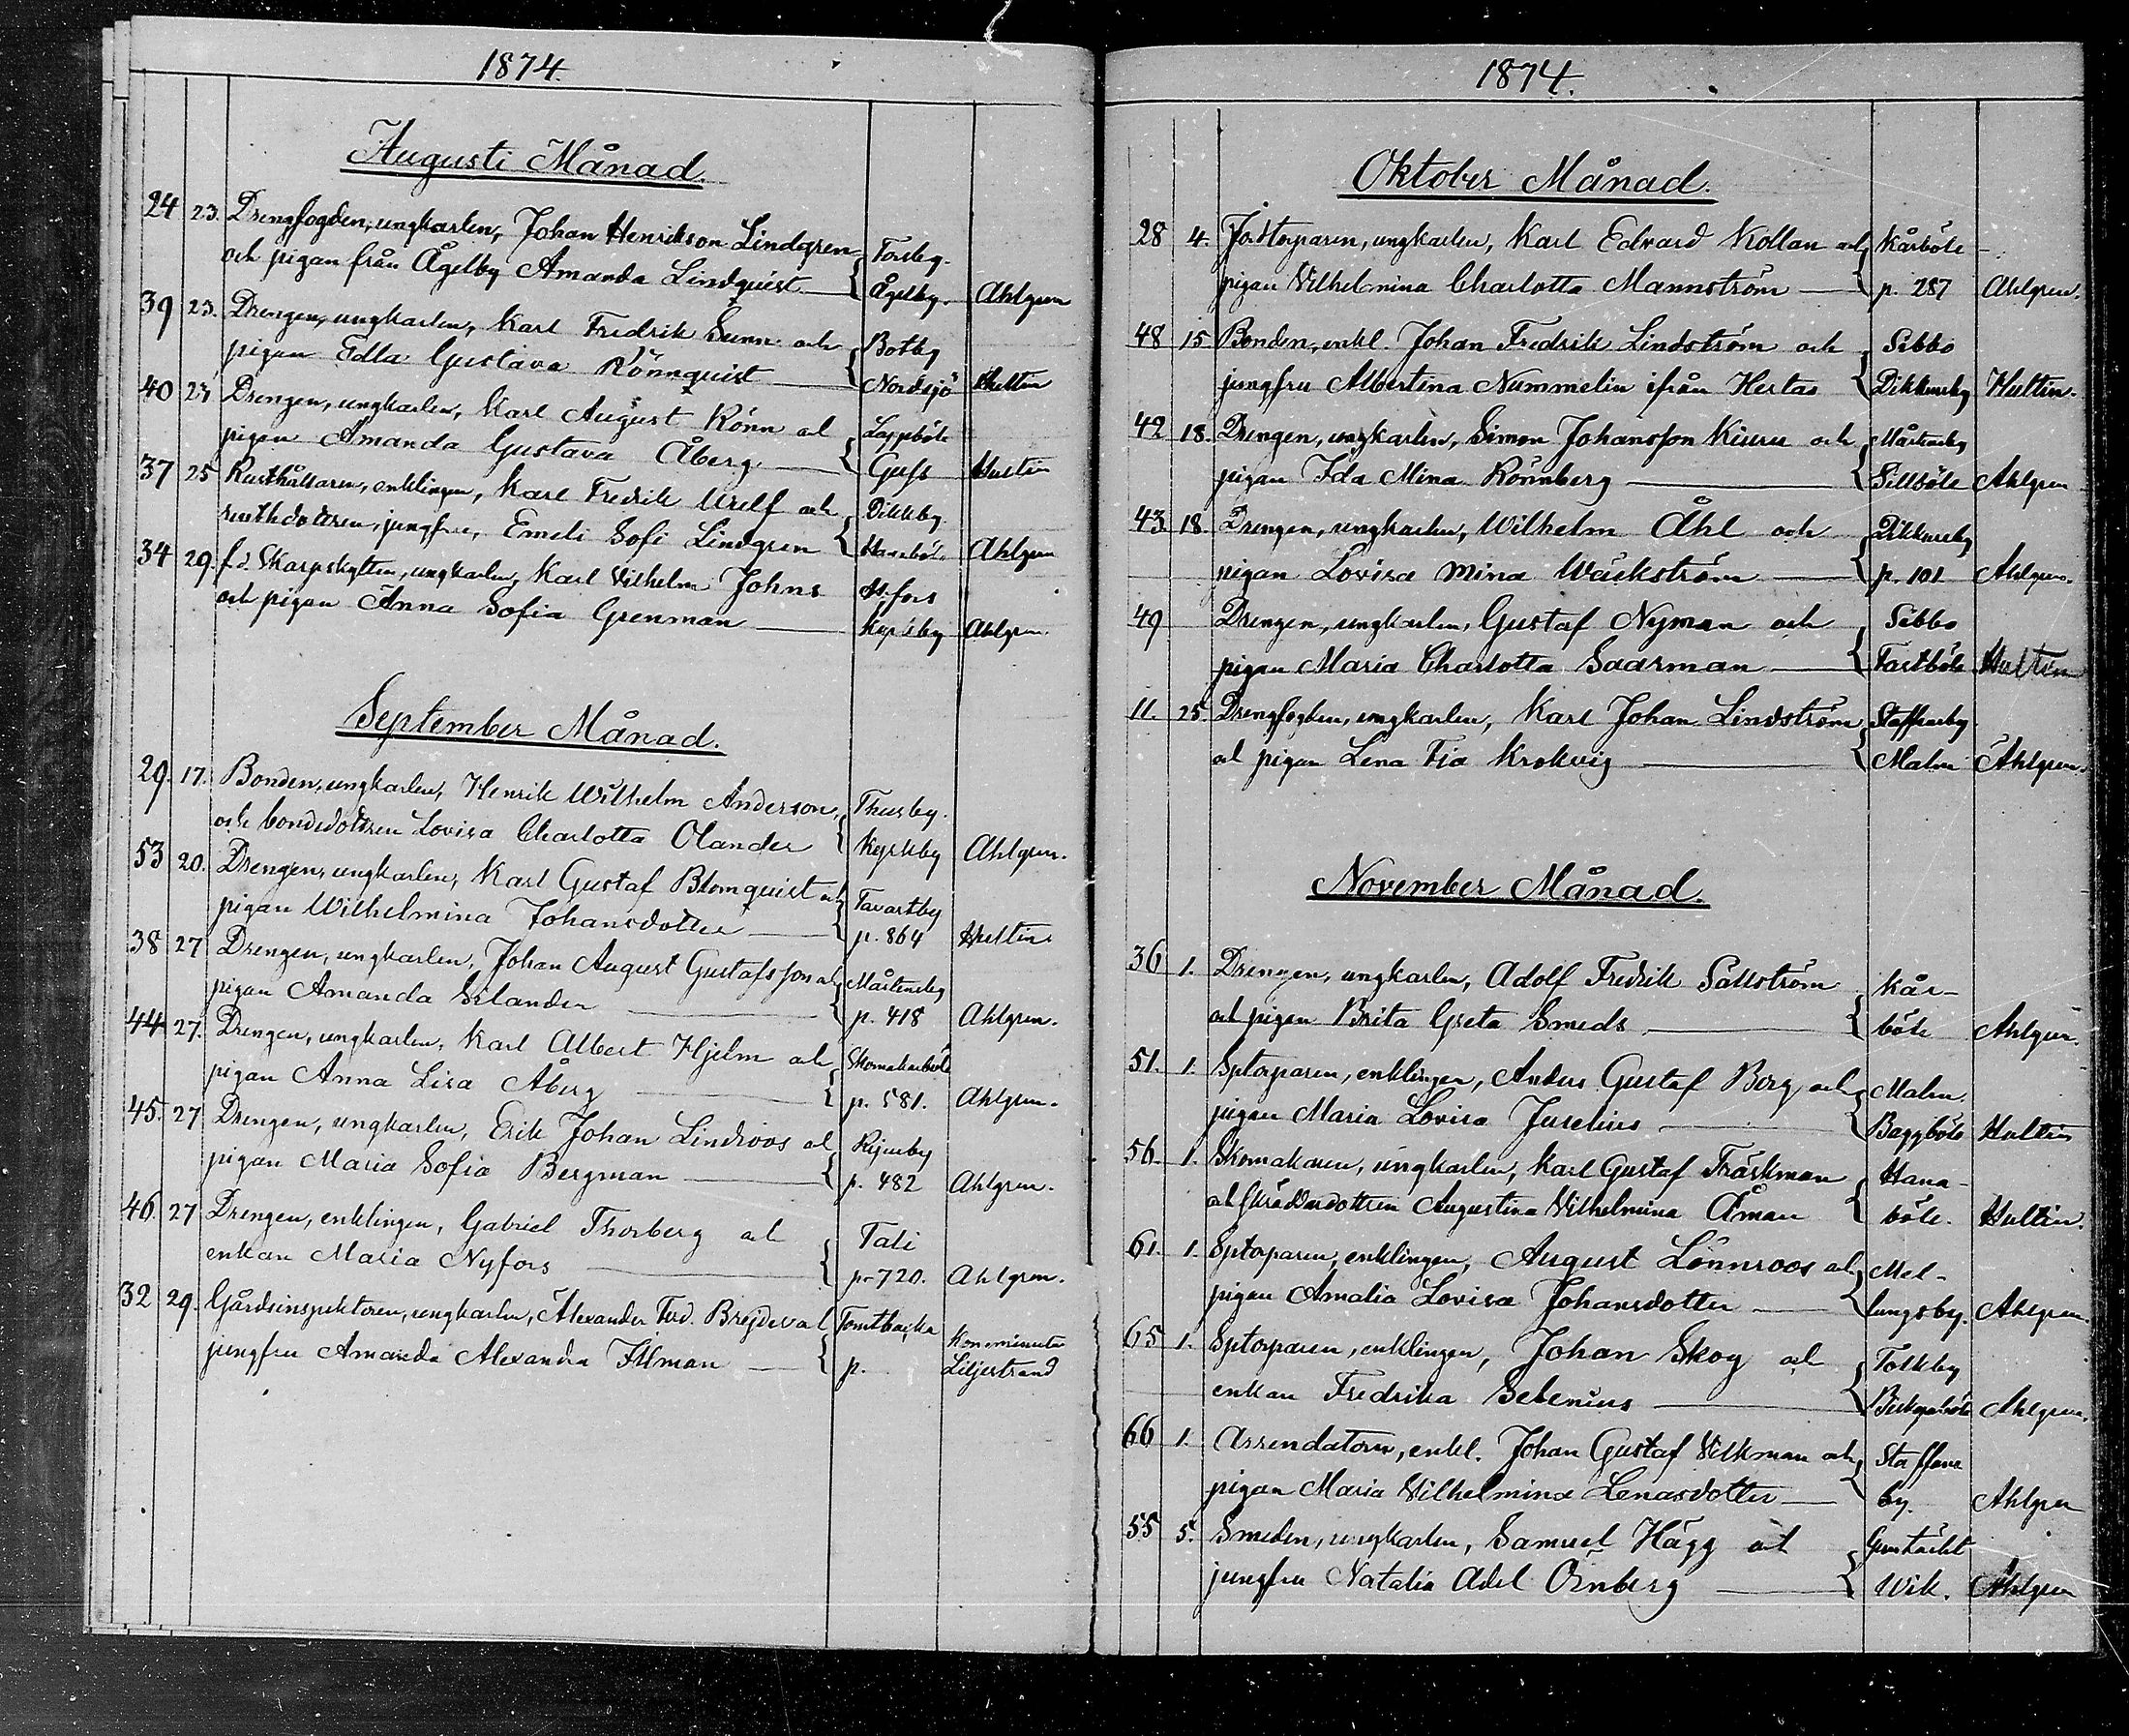 1874.
Augusti Månad.
24 23. Drengfogden, ungkarlen, Johan Henrikson Lindgren Forsby.
och pigan från Ågelby Amanda Lindquist Ågelby. Ahlgren
39 23. Drengen, ungkarlen, Karl Fredrik Sunn och Botby
pigan Edla Gustava Rönnquist Nordsjö Hultin
40 23 Drengen, ungkarlen, Karl August Rönn och Lappböle
pigan Amanda Gustava Åberg Hultin
37 25 Rusthållaren, enklingen, Karl Fredrik och Dikkby
rusthdottren, jungfru, Emeli Sofi Lindgren Hanaböl. Ahlgren
34 29. f.d. Skarpskytten, ungkarlen, Karl Vilhelm Johns H.fors
och pigan Anna Sofia Grenman Kyrkby Ahlgren.
September Månad.
29. 17. Bonden, ungkarlen, Henrik Wilhelm Anderson, Thusby.
och bondedottren Lovisa Charlotta Olander Kyrkby Ahlgren.
53 20. Drengen, ungkarlen, Karl Gustaf Blomquist och Tavastby
pigan Wilhelmina Johansdotter p. 864 Hultin
38 27 Drengen, ungkarlen, Johan August Gustafsson och Mårtensby
pigan Amanda Selander p. 418 Ahlgren.
44 27. Drengen, ungkarlen, Karl Albert Hjelm och Skomakarböle
pigan Anna Lisa Åberg p. 581. Ahlgren.
45. 27 Drengen, ungkarlen, Erik Johan Lindroos och
pigan Maria Sofia Bergman p. 482 Ahlgren.
46. 27 Drengen, enklingen, Gabriel Thorberg och Tali
enkan Maria Nyfors p. 720. Ahlgren.
32 29. Gårdsinspektoren, ungkarlen, Alexander Ferd. Tomtbacka
jungfru Amanda Alexandra Illman p. Liljestrand
1874.
Oktober Månad.
28 4. Jordtorparen, ungkarlen, Karl Edvard Kollan och Kårböle
pigan Vilhelmina Charlotta Mannström p. 287 Ahlgren.
48 15 Bonden, enkl. Johan Fredrik Lindström och Sibbo
jungfru Albertina Nummelin ifrån Hertas Dikkursby Hultin.
42 18. Drengen, ungkarlen, Simon Johansson och Mårtensby
pigan Ida Mina Rönnberg Sillböle Ahlgren
43 18 Drengen, ungkarlen, Wilhelm Åhl och Dikkursby
pigan Lovisa Mina Wäckström p. 101 Ahlgren.
49 Drengen, ungkarlen, Gustaf Nyman och Sibbo
pigan Maria Charlotta Saarman Fastböle Hultin
11. 25. Drengfogden, ungkarlen, Karl Johan Lindström Staffansby
och pigan Lena Fia Krokvig Malm Ahlgren.
November Månad.
36 1. Drengen, ungkarlen, Adolf Fredrik Sällström Kår-
och pigan Brita Greta Smeds böle Ahlgren.
51. 1. Sptorparen, enklingen, Anders Gustaf Berg och Malm.
pigan Maria Lovisa Juselius Baggböle Hultin
56. 1. Skomakaren, ungkarlen, Karl Gustaf Träskman Hana-
och skräddardottren Augustina Vilhelmina Åman böle. Hultin.
61. 1. Sptorparen, enklingen, August Lönnroos och Mel-
pigan Amalia Lovisa Johansdotter lungsby. Ahlgren.
65 1. Sptorparen, enklingen, Johan Skog och Tolkby
enkan Fredrika Selenius Biskopsböle Ahlgren.
66 1. Arrendatorn, enkl. Johan Gustaf Vikman och Staffans
pigan Maria Vilhelmina Lenasdotter by. Ahlgren
55 5. Smeden, ungkarlen, Samuel Hägg och Gumtäckt
jungfru Natalia Adel Örnberg Wik. Ahlgren